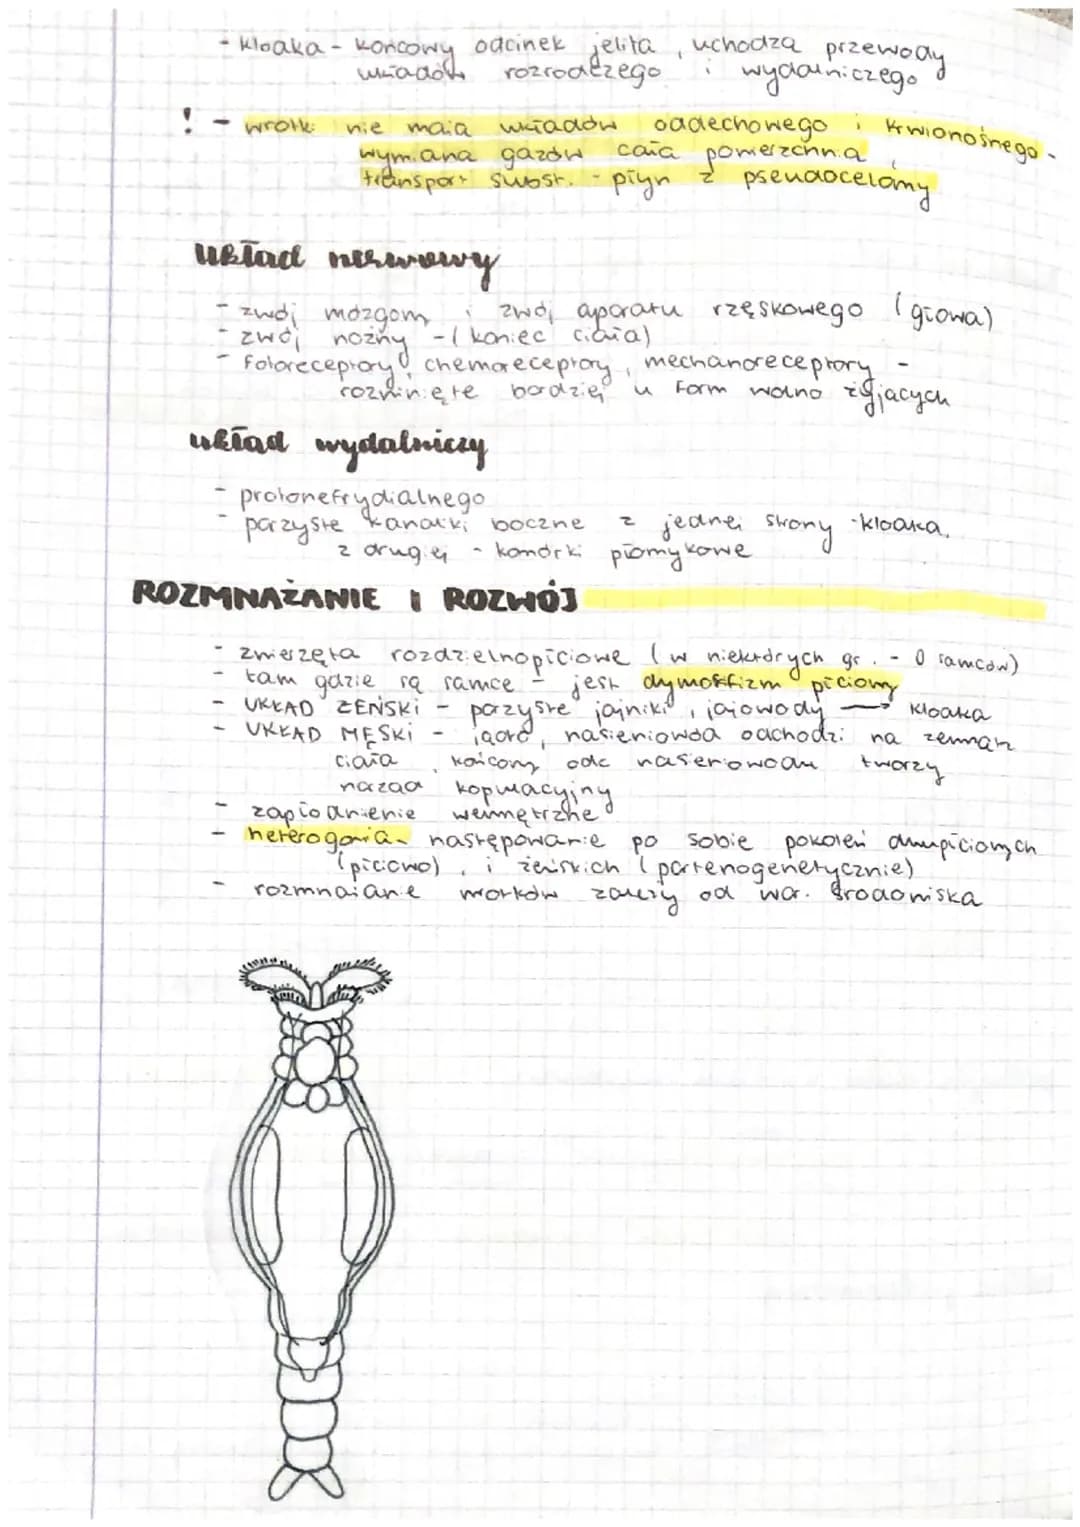 - kloaka - końcowy odcinek jelita, uchodzą przewody
układów rozrodczego i wydalniczego
! - wrotki nie mają układów oddechowego i krwionośnego -
wymiana gazów całą powierzchnią,
transport subst. - płyn z pseudocelomy
układ nerwowy
- zwój mózgowy i zwój aparatu rzęskowego (głowa)
- zwój nożny - (koniec ciała)
- fotoreceptory, chemoreceptory, mechanoreceptory -
rozwinięte bardziej u form wolno żyjących
układ wydalniczy
- protonefrydialnego
- parzyste kanaliki boczne z jednej strony - kloaka,
z drugiej - komórki płomykowe
ROZMNAŻANIE I ROZWÓJ
- zwierzęta rozdzielnopłciowe (w niektórych gr. - 0 samców)
- tam gdzie są samce - jest dymorfizm płciowy
- UKŁAD ŻEŃSKI - parzyste jajniki, jajowody → kloaka
- UKŁAD MĘSKI - jądro, nasieniowód odchodzi na zewnątrz
ciała, końcowy odc nasieniowodu tworzy
narząd kopulacyjny
- zapłodnienie wewnętrzne
- heterogonia - następowanie po sobie pokoleń dwupłciowych
(płciowo), i żeńskich (partenogenetycznie)
- rozmnażanie wrotków zależy od war. środowiska